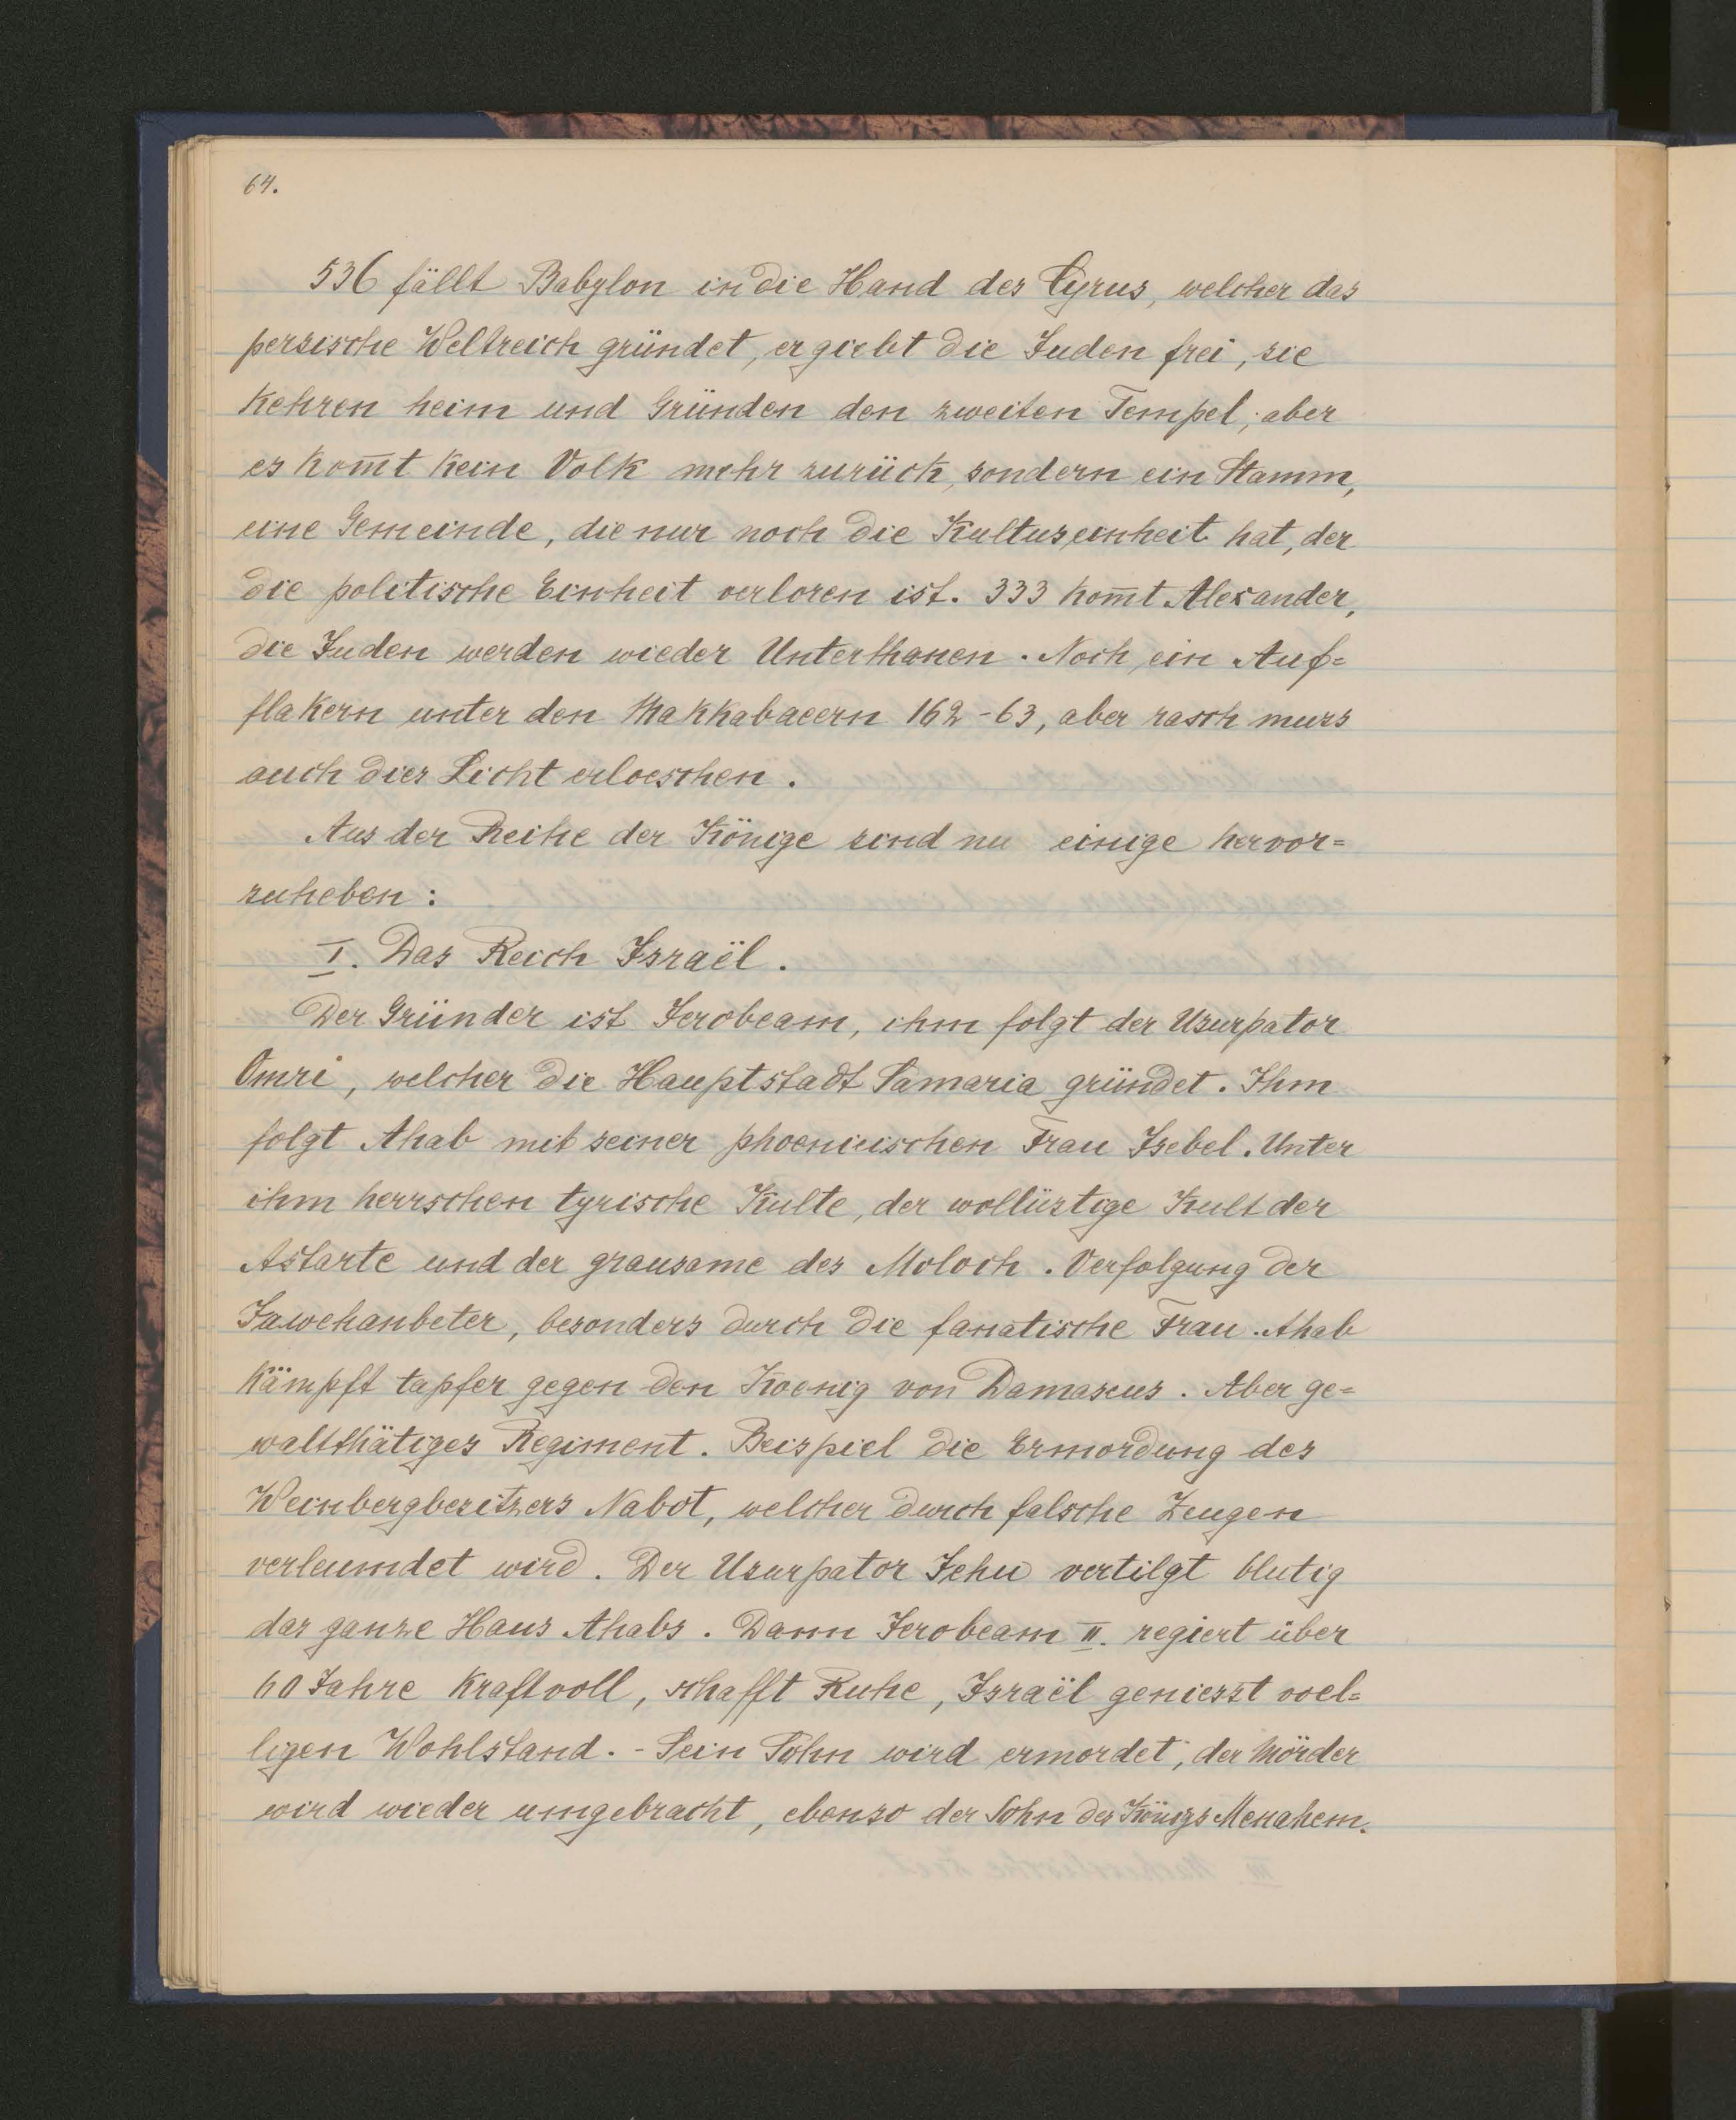 64.
536 fällt Babylon in die Hand des Cyrus, welcher das
persische Weltreich gründet, er giebt die Juden frei, sie
kehren heim und gründen den zweiten Tempel; aber
es kom̄t kein Volk mehr zurück, sondern ein Stamm,
eine Gemeinde, die nur noch die Kultuseinheit hat, der
die politische Einheit verloren ist. 333 kom̄t Alexander,
die Juden werden wieder Unterthanen. Noch ein Auf=
flakern unter den Makkabaeern 162-63, aber rasch muss
auch dies Licht erloeschen.
Aus der Reihe der Könige sind nu einige hervor=
zuheben:
I. Das Reich Israël.
Der Gründer ist Jerobeam, ihm folgt der Usurpator
Omri, welcher die Hauptstadt Samaria gründet. Ihm
folgt Ahab mit seiner phoenicischen Frau Isebel. Unter
ihm herrschen tyrische Kulte, der wollüstige Kult der
Astarte und der grausame des Moloch. Verfolgung der
Jawehanbeter, besonders durch die fanatische Frau. Ahab
kämpft tapfer gegen den Koenig von Damascus. Aber ge=
waltthätiges Regiment. Beispiel die Ermordung des
Weinbergbesitzers Nabot, welcher durch falsche Zeugen
verleumdet wird. Der Usurpator Jehu vertilgt blutig
das ganze Haus Ahabs. Dann Jerobeam II. regiert über
60 Jahre kraftvoll, schafft Ruhe, Israël geniesst voel=
ligen Wohlstand. - Sein Sohn wird ermordet, der Mörder
wird wieder umgebracht, ebenso der Sohn des Königs Menahem.